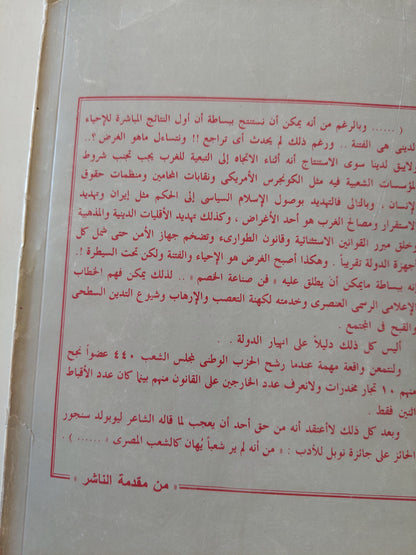 ( ...... وبالرغم من أنه يمكن أن نستنتج ببساطة أن أول النتائج المباشرة للإحياء
لدينى هى الفتنة .. ورغم ذلك لم يحدث أى تراجع !! ونتساءل ماهو الغرض ؟..
ولايبق لدينا سوى الاستنتاج أنه أثناء الاتجاه إلى التبعية للغرب يجب تجنب شروط
لمؤسسات الشعبية فيه مثل الكونجرس الأمريكى ونقابات المحامين ومنظمات حقوق
لإنسان . وبالتالى فالتهديد بوصول الإسلام السياسى إلى الحكم مثل إيران وتهديد
الاستقرار ومصالح الغرب هو أحد الأغراض ، وكذلك تهديد الأقليات الدينية والمذهبية
خلق مبرر القوانين الاستثنائية وقانون الطوارىء وتضخم جهاز الأمن حتى شمل كل
جهزة الدولة تقريباً . وهكذا أصبح الغرض هو الإحياء والفتنة ولكن تحت السيطرة !.
إنه ببساطة مايمكن أن يطلق عليه « فن صناعة الخصم » .. لذلك يمكن فهم الخطاب
الإعلامى الرسمى العنصرى وخدمته لكهنة التعصب والإرهاب وشيوع التدين السطحى
والقبح فى المجتمع .
أليس كل ذلك دليلاً على انهيار الدولة .
ولنتمعن واقعة مهمة عندما رشح الحزب الوطنى لمجلس الشعب ٤٤٠ عضواً نجح
منهم ١٠ تجار مخدرات ولانعرف عدد الخارجين على القانون منهم بينما كان عدد الأقباط
اثنين فقط .
وبعد كل ذلك لاأعتقد أنه من حق أحد أن يعجب لما قاله الشاعر ليوبولد سنجور
الحائز على جائزة نوبل للأدب : « من أنه لم ير شعباً يُهان كالشعب المصرى » ...... ) .
« من مقدمة الناشر »